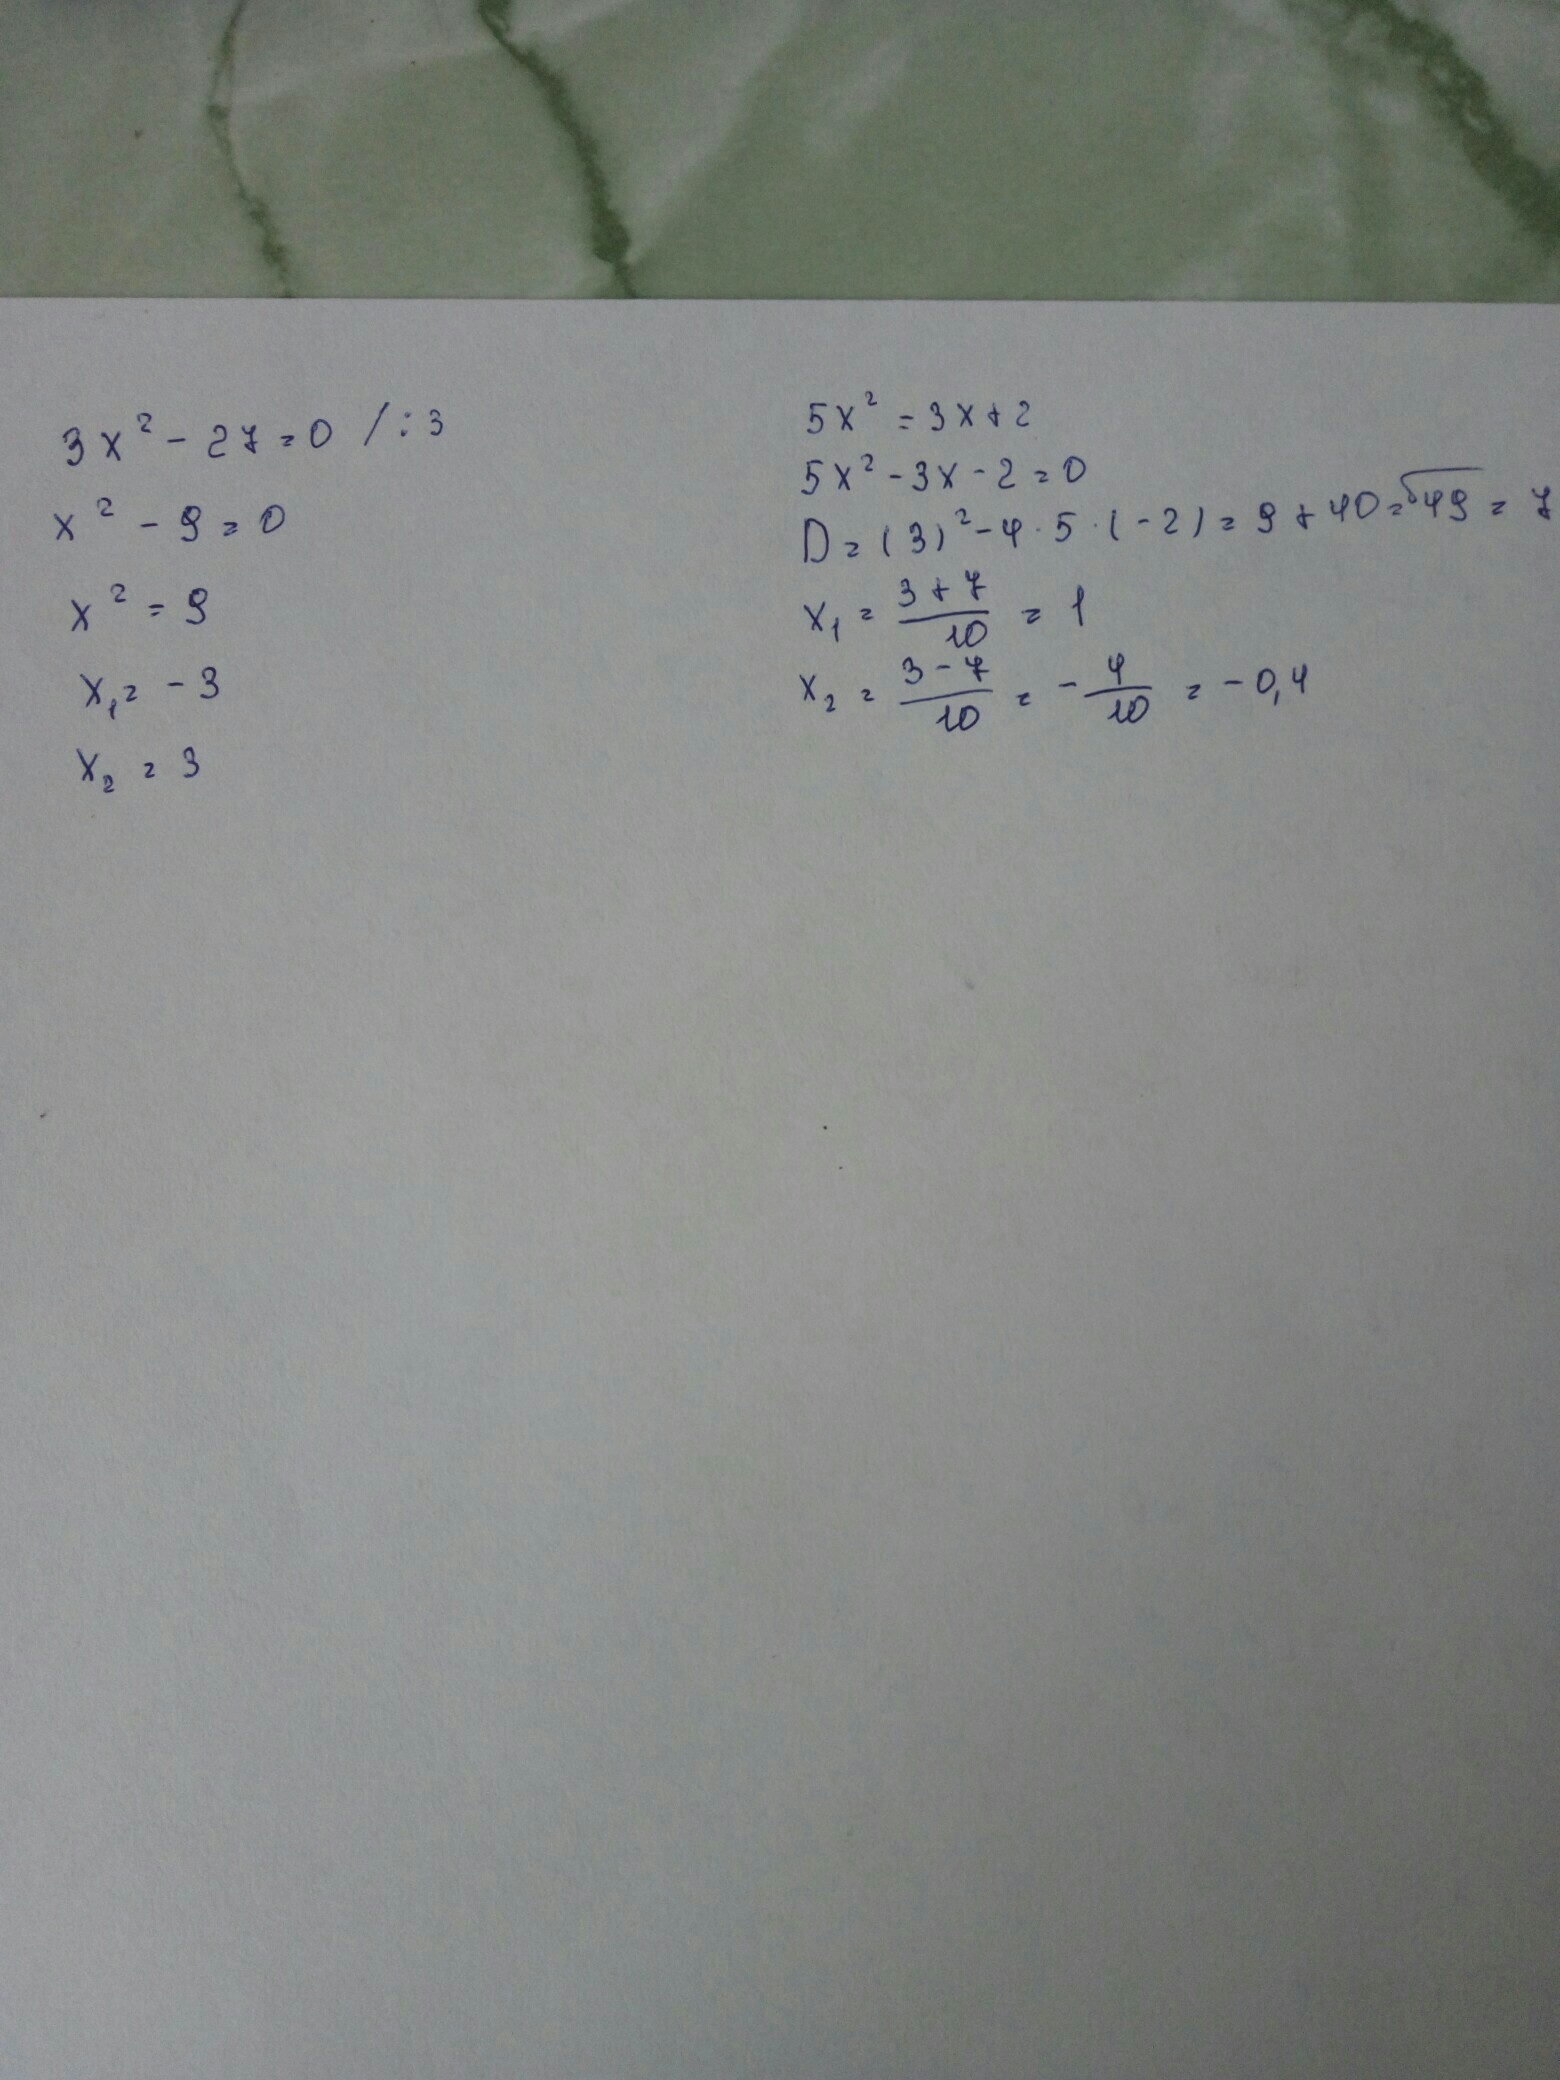 3x² - 27 = 0 /:3
x² - 9 = 0
x² = 9
x₁ = -3
x₂ = 3
5x² = 3x + 2
5x² - 3x - 2 = 0
D = (3)² - 4 · 5 · (-2) = 9 + 40 = √49 = 7
x₁ = (3 + 7)/10 = 1
x₂ = (3 - 7)/10 = -4/10 = -0,4